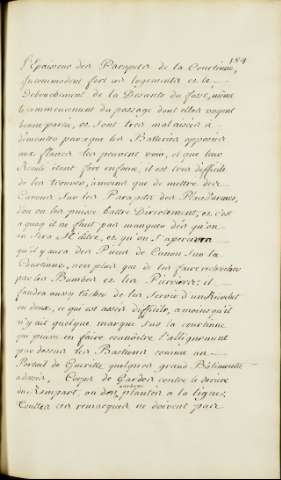 184
l'Epaisseur des Parapets de la Courtinne,
Incommodent fort ces logements et le
Debouchement de la Descente du fossé, même
le commencement du passage dont elles voyent
bonne partie, et sont tres malaisées a
démonter parceque les Batteries opposées
aux flancs les peuvent voir, et que leur
Recul étant fort enfoncé, il est tres difficile
de les trouver, amoins que de mettre des
Canons sur les Parapets des Places d'armes,
d'ou on les puisse battre Directement, et c'est
a quoy il ne faut pas manquer dès qu'on
en sera Maître, et qu'on s'apercevra
qu'il y aura des Pieces de Canon sur la
Courtinne, non plus que de les faire rechercher
par les Bombes et les Pierriers; il
faudra aussy tâcher de les servir d'un Ricochet
ou deux, ce qui est assés difficile, amoins qu'il
n'y ait quelque marque sur la courtine
qui puisse en faire connoître l'alignement
par dessus les Bastions comme un
Portail de Gueritte quelques grand Bâtiments
adossés, Corps de Gardes contre le derriere
du Rempart, ou des plantés a la ligne;
Touttes ces remarques ne doivent pas